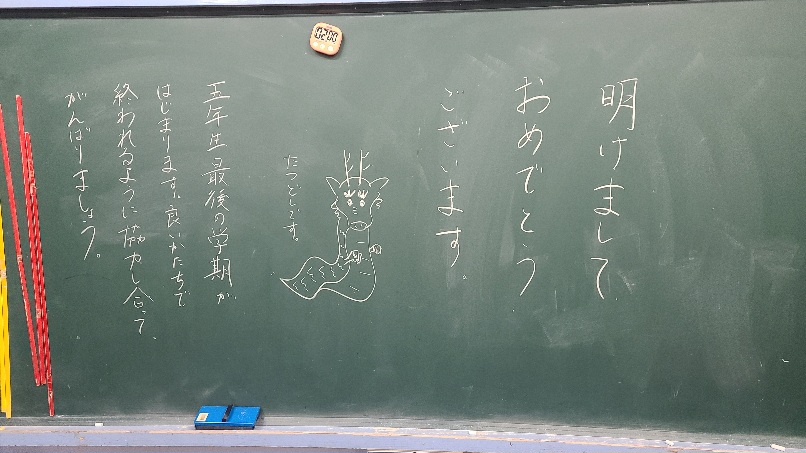 明けまして
おめでとう
ございます。
たつどしです。
五年生最後の学期が
はじまります。良いかたちで
終われるように協力し合って
がんばりましょう。